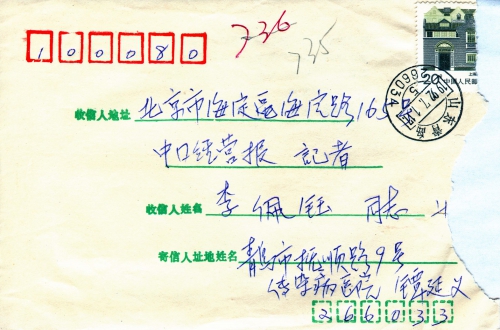 100080
736
735
20
中国人民邮
上海
266034
山东青岛
收信人地址 北京市海淀区海淀路165
中口经营报 記者
收信人姓名 李佩钰 同志
寄信人址地姓名 青岛市抚顺路9号
传染病医院 谭延义
266033